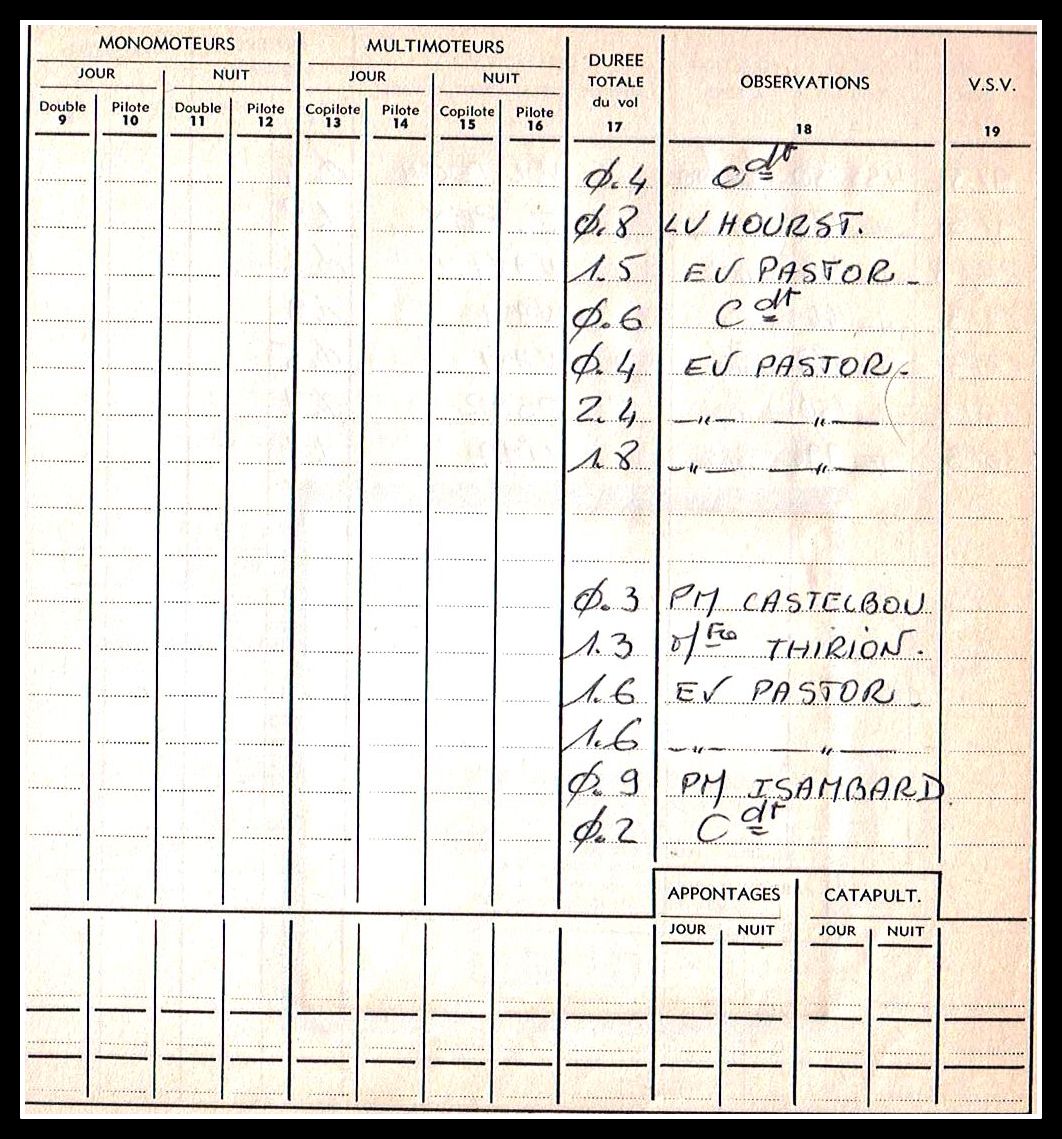 MONOMOTEURS MULTIMOTEURS DUREE TOTALE du vol OBSERVATIONS V.S.V.
JOUR NUIT JOUR NUIT
Double Pilote Double Pilote Copilote Pilote Copilote Pilote
9 10 11 12 13 14 15 16 17 18 19
Ø.4 Cdt
Ø.8 LV HOURST.
1.5 EV PASTOR -
Ø.6 Cdt
Ø.4 EV PASTOR -
2.4 —〃— —〃—
1.8 —〃— —〃—
Ø.3 PM CASTELBOU
1.3 THIRION.
1.6 EV PASTOR -
1.6 —〃— —〃—
Ø.9 PM ISAMBARD.
Ø.2 Cdt
APPONTAGES CATAPULT.
JOUR NUIT JOUR NUIT